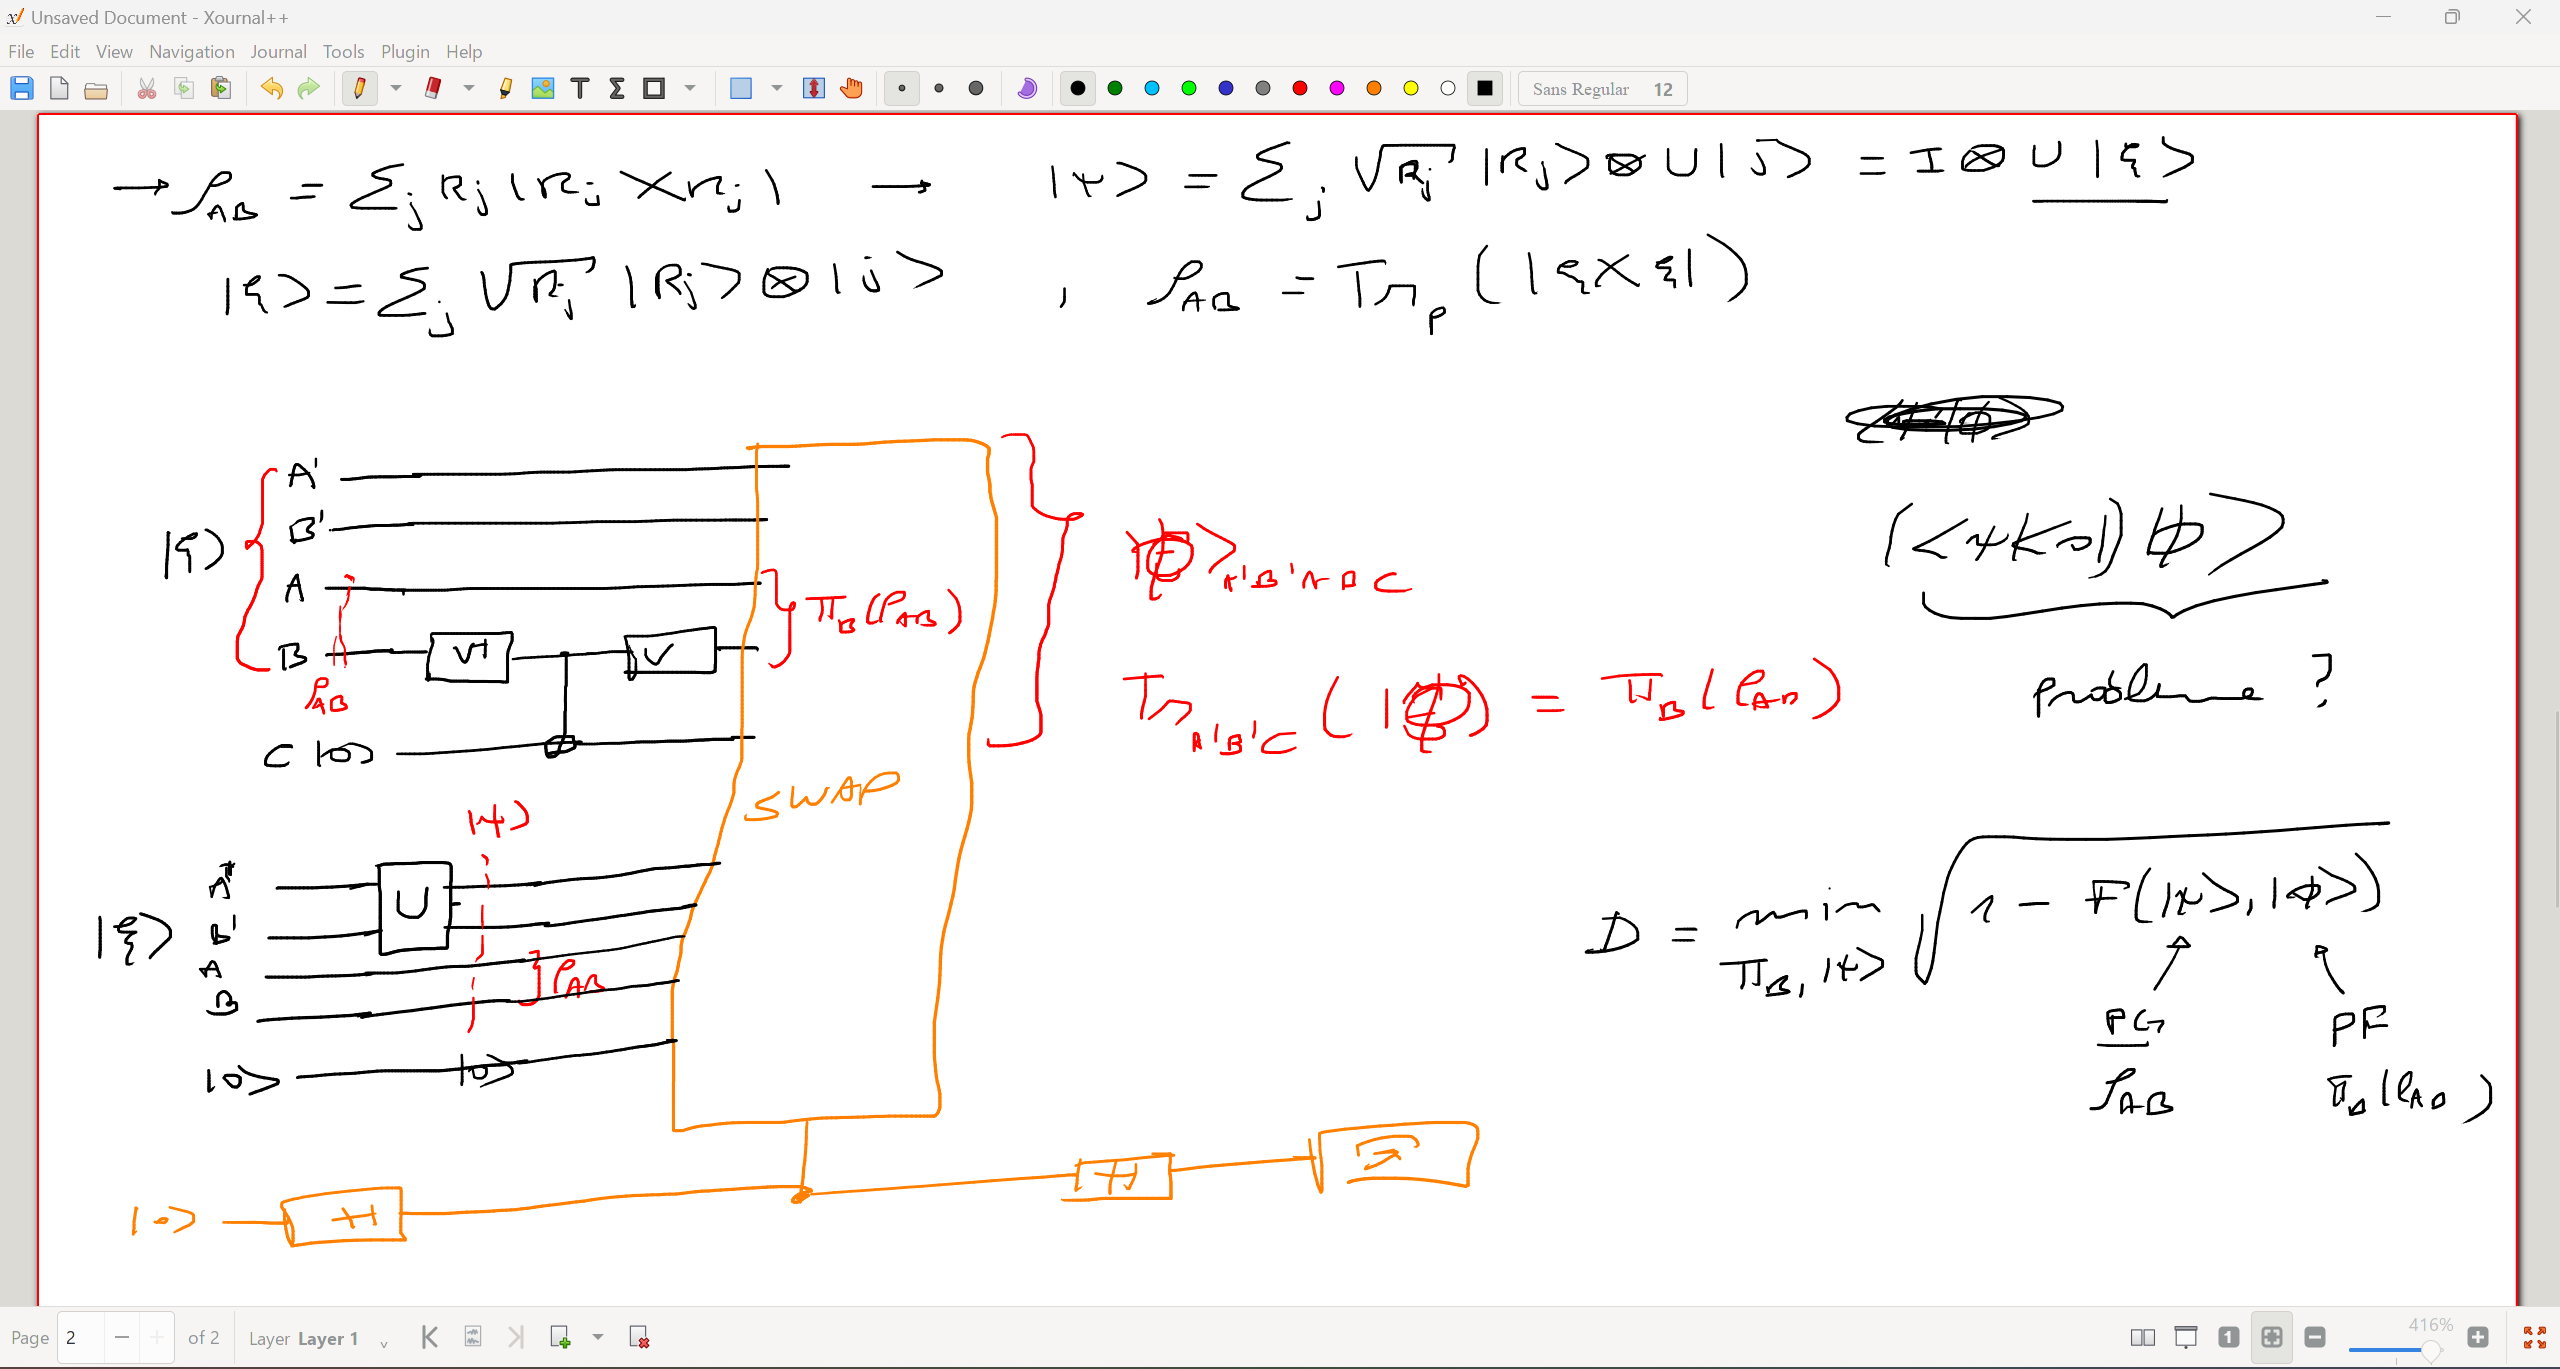 Unsaved Document - Xournal++
File Edit View Navigation Journal Tools Plugin Help
Sans Regular 12
→ ρ_AB = Σ_j R_j |R_j X R_j| → |ψ> = Σ_j √R_j |R_j> ⊗ U|j> = I ⊗ U|ξ>
|ξ> = Σ_j √R_j |R_j> ⊗ |j> , ρ_AB = Tr_P (|ξ X ξ|)
A'
B'
|ξ>
A
B
V†
V
ρ_AB
Π_B(ρ_AB)
C |0>
|Φ>_A'B'ABC
(<ψ|<0|) |ϕ>
probleme ?
Tr_A'B'C (|Φ) = Π_B(ρ_AB)
SWAP
|ψ>
U
|ξ>
B'
A
B
ρ_AB
|0>
|0>
D = min √1 - F(|ψ>, |ϕ>)
Π_B, |ψ>
PG
PF
ρ_AB
Π_B(ρ_AB)
|0>
H
H
Page 2 of 2 Layer Layer 1 416%